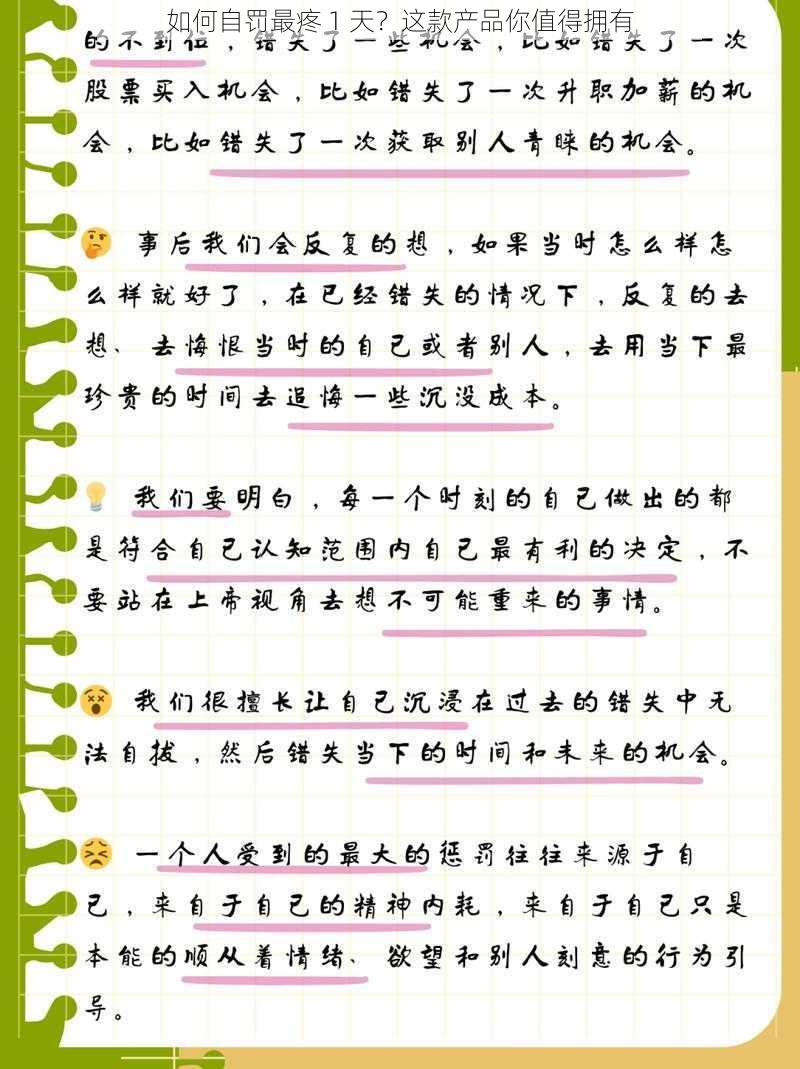 如何自罚最疼 1 天？这款产品你值得拥有
的不到位，错失了一些机会，比如错失了一次
股票买入机会，比如错失了一次升职加薪的机
会，比如错失了一次获取别人青睐的机会。
事后我们会反复的想，如果当时怎么样怎
么样就好了，在已经错失的情况下，反复的去
想、去悔恨当时的自己或者别人，去用当下最
珍贵的时间去追悔一些沉没成本。
我们要明白，每一个时刻的自己做出的都
是符合自己认知范围内自己最有利的决定，不
要站在上帝视角去想不可能重来的事情。
我们很擅长让自己沉浸在过去的错失中无
法自拔，然后错失当下的时间和未来的机会。
一个人受到的最大的惩罚往往来源于自
己，来自于自己的精神内耗，来自于自己只是
本能的顺从着情绪、欲望和别人刻意的行为引
导。